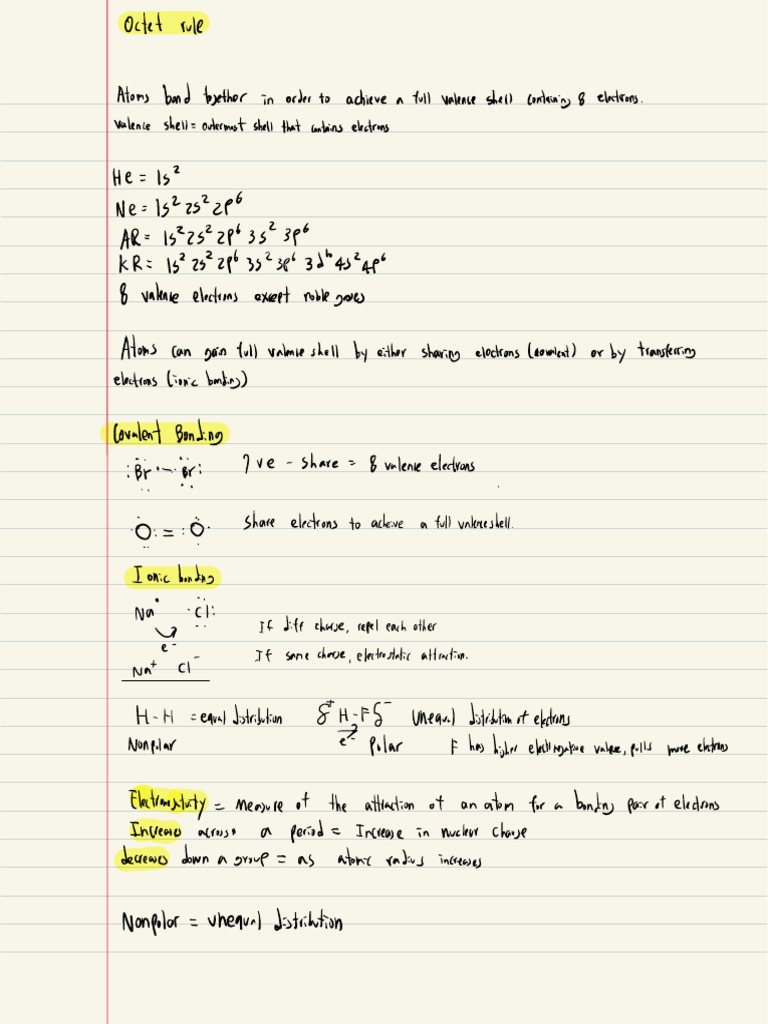 Octet rule
Atoms bond together in order to achieve a full valence shell containing 8 electrons.
valence shell = outermost shell that contains electrons
He = 1s²
Ne = 1s² 2s² 2p⁶
AR = 1s² 2s² 2p⁶ 3s² 3p⁶
KR = 1s² 2s² 2p⁶ 3s² 3p⁶ 3d¹⁰ 4s² 4p⁶
8 valence electrons except noble gases
Atoms can gain full valence shell by either sharing electrons (covalent) or by transferring
electrons (ionic bonding)
Covalent Bonding
:Br·–Br: 7 ve - share = 8 valence electrons
O: = :O share electrons to achieve a full valence shell.
Ionic bonding
Na· ·Cl:
If diff charge, repel each other
e⁻
If same charge, electrostatic attraction.
Na⁺ Cl⁻
H-H = equal distribution δ⁺ H-F δ⁻ unequal distribution of electrons
Nonpolar e⁻ Polar F has higher electronegative value, pulls more electrons
Electronegativity = measure of the attraction of an atom for a bonding pair of electrons
Increases across a period = Increase in nuclear charge
decreases down a group = as atomic radius increases
Nonpolar = unequal distribution